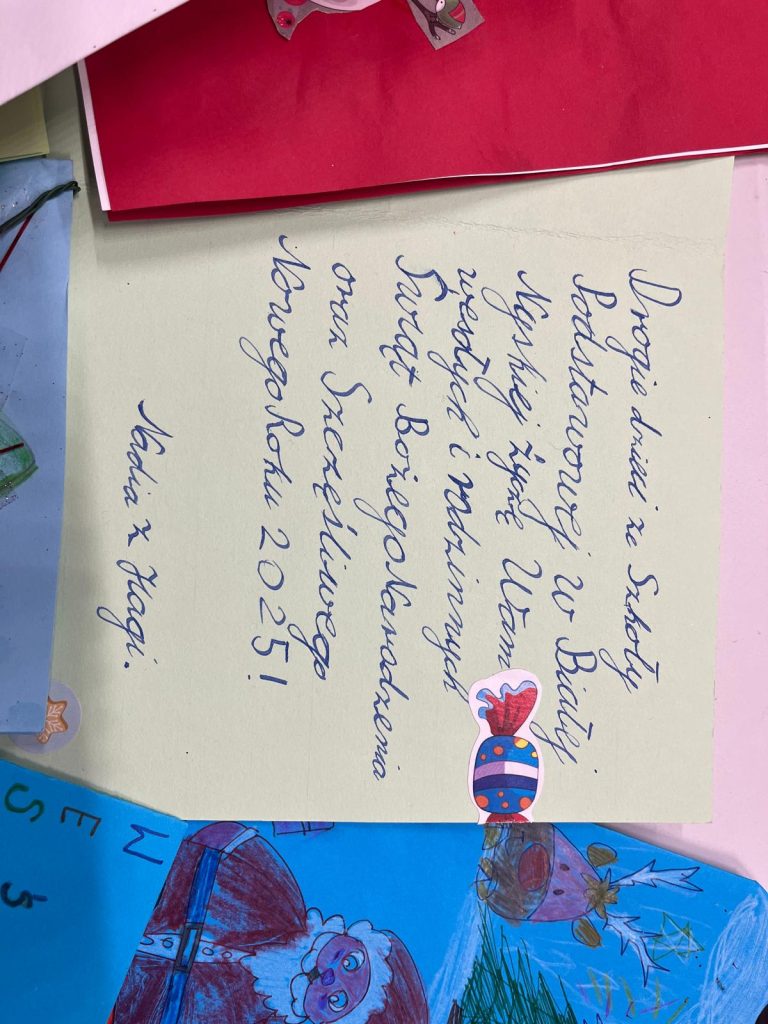 Drogie dzieci ze Szkoły
Podstawowej w Białej
Nyskiej życzę Wam
wesołych i rodzinnych
Świąt Bożego Narodzenia
oraz Szczęśliwego
Nowego Roku 2025!
Nadia z Hagi.
WES